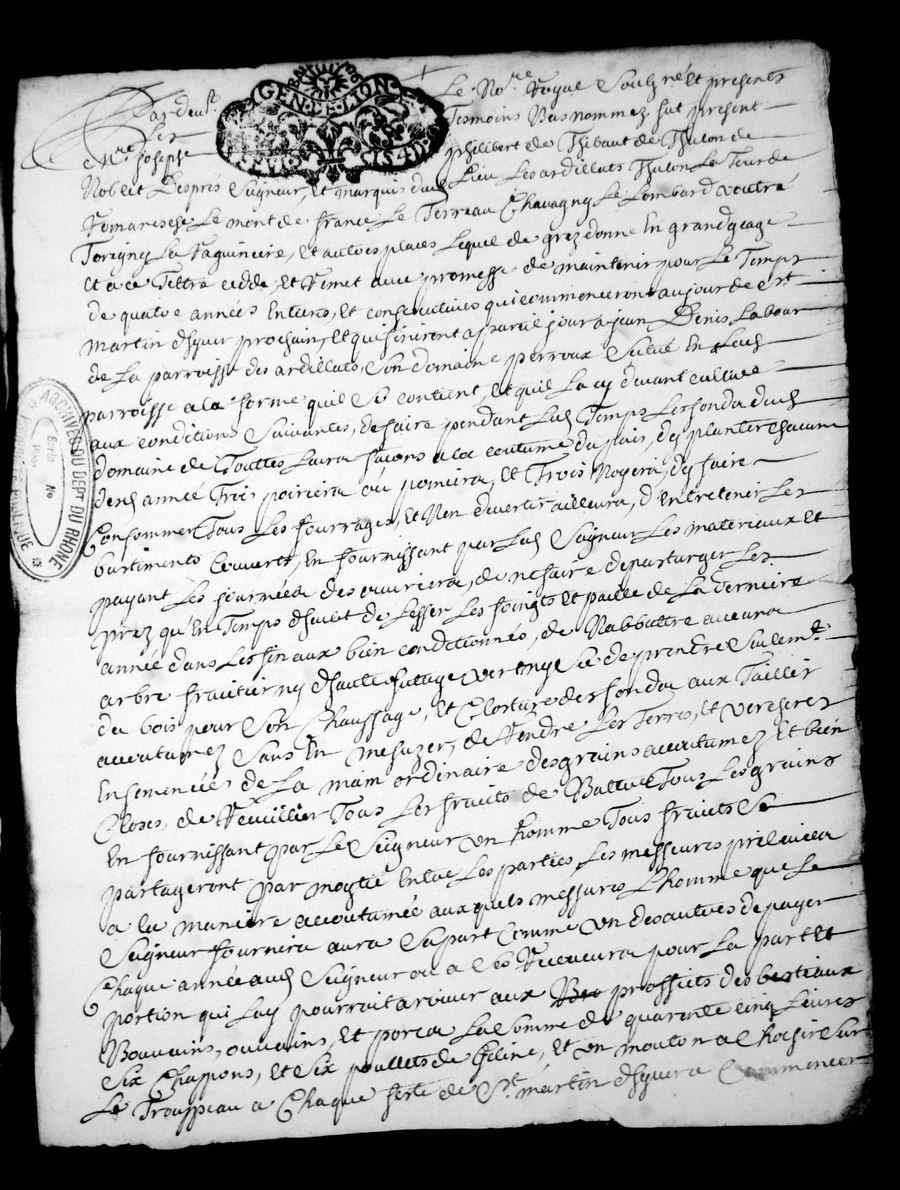 Pardevt Le No.re Royal Soubzné et presents
Les Tesmoins Bas nommez, fut present
Mre Joseph philibert de Thibaut de Thulon de
Noblet Després Seigneur, et marquis dud Lieu Les ardillats Thulon La Tour de
Romanesche Le mont de france Le Terreau Chavagny Le Lombard voutré
Torvigny La Raguiniere, et autres places Lequel de grez donne En grandgeage
et a ce Tiltre cedde, et Remet avec promesse de maintenir pour Le Temps
de quatre années Entieres, et consecutives qui commenceront au jour de st
martin dhyver prochain, et qui finiront a pareil jour a jean Denis Labour
de La parroisse des ardillats, Son domaine perroux Situé En Lad
parroisse a la forme quil Se contient, et quil La cy devant cultivé
aux conditions Suivantes, de faire pendant Led Temps Les fonds dud
domaine de Touttes Leurs facons a la coutume du pais, dy planter chacune
desd année Trois poiriers ou pomiers, et Trois Noyers, dy faire
Consommer Tous Les fourrages, et N'en divertir ailleurs, d'Entretenir Les
bastiments Couverts, en fournissant par Led Seigneur Les materiaux et
payant Les journées des ouvriers, de ne faire departarger Les
prez qu'En Temps d'hu de Lesser Les foings et paille de La derniere
année dans Les finaux bien conditionnés, de N'abbattre aucuns
arbre fruitier ny d'haute futtage verd ny Sec de prendre Seulemt
du bois pour Son Chauffage, et Closture des fonds aux Tailliz
accoutumez Sans En mesuzer, de Rendre Les Terres, et vercheres
Ensemencées de La main ordinaire des grains accoutumez et bien
Closes, de Receuillir Tous Les fruits de Battre Tous Les grains
En fournissant par Le Seigneur un homme Tous fruits Se
partageront par moytié Entre Les parties, Les messeures prélevées
a la maniere accoutumée aux quels messures L'homme que Le
Seigneur fournira aura Sa part Comme un des autres de payer
Chaque année aud Seigneur ou a Ses Receveurs pour La part et
portion qui Luy pourrait arriver aux proffits des bestiaux
Bouvains, ouvains, et porcs La Somme de quarante cinq Livres
Six Chappons, et Six poullets de Geline, et un mouton a Choisir Sur
Le Trouppeau a Chaque feste de St martin dhyvers Commencer
GEN DE LION
ARCHIVES DU DEPT DU RHONE
Serie
No